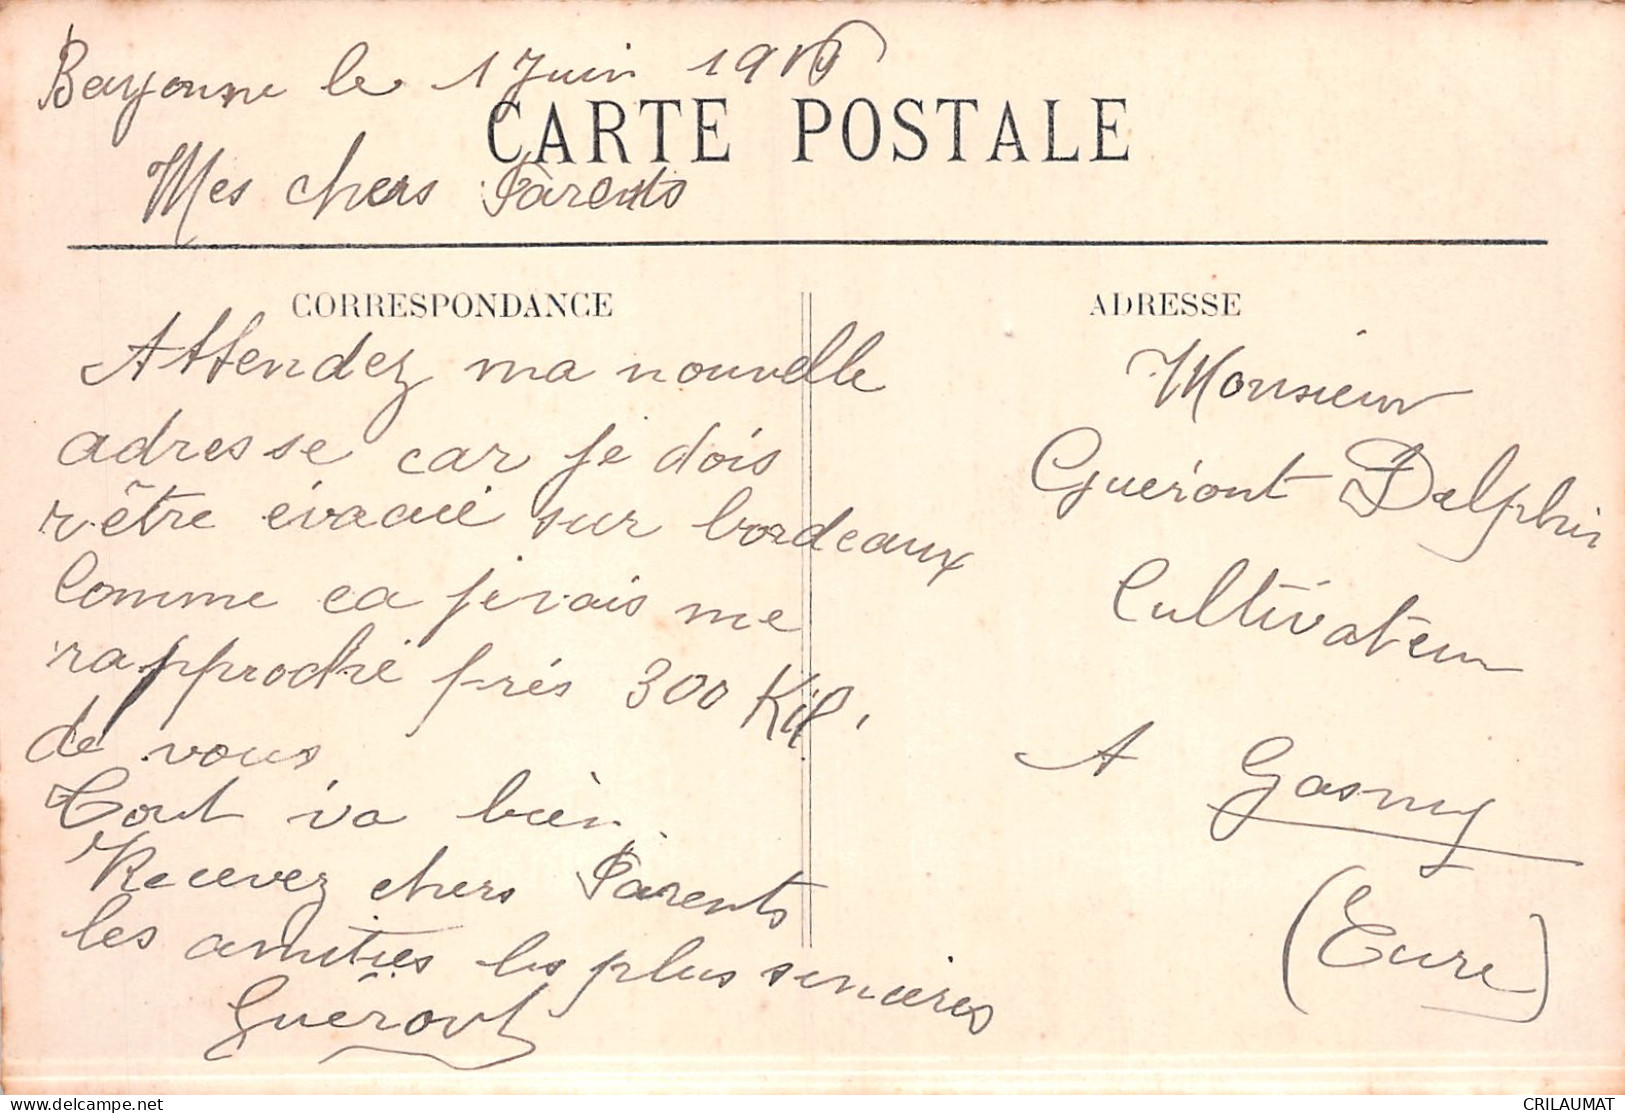 Bayonne le 1 Juin
CARTE POSTALE
Mes chers Parents
CORRESPONDANCE
Attendez ma nouvelle
adresse car je dois
r être évacué sur bordeaux
Comme ca j'irais me
rapproché prés 300 Kil.
de vous
Tout va bien.
Recevez chers Parents
les amities les plus sincères
Guéront
ADRESSE
Monsieur
Guéront Delphin
Cultivateur
A Gasny
(Eure)
delcampe.net
CRILAUMAT